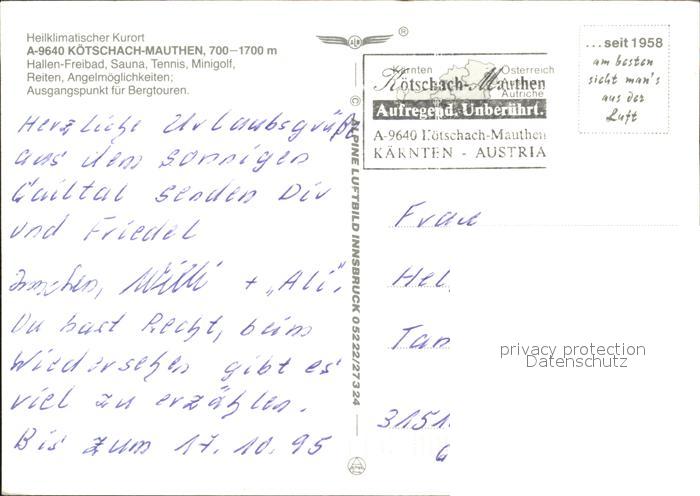 Heilklimatischer Kurort
A-9640 KÖTSCHACH-MAUTHEN, 700–1700 m
Hallen-Freibad, Sauna, Tennis, Minigolf,
Reiten, Angelmöglichkeiten;
Ausgangspunkt für Bergtouren.
Herzliche Urlaubsgrüße
aus dem sonnigen
Gailtal senden Dir
und Friedel
Willi + "Ali".
Du hast Recht, beim
Wiedersehen gibt es
viel zu erzählen.
Bis zum 17.10.95
© ALPINE LUFTBILD INNSBRUCK 05222/27324
®
Kärnten Österreich
Kötschach-Mauthen
Autriche
Aufregend. Unberührt.
A-9640 Kötschach-Mauthen
KÄRNTEN - AUSTRIA
...seit 1958
am besten
sicht man's
aus der
Luft
Frau
Hel
Tan
3151
privacy protection
Datenschutz